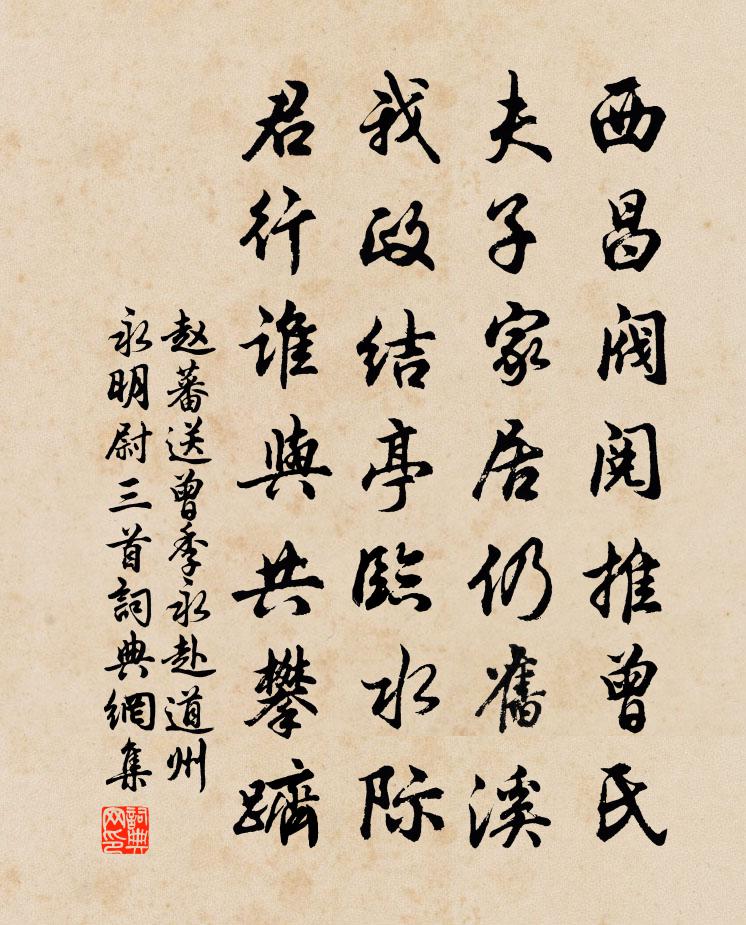 西昌阀阅推曾氏
夫子家居仍舊溪
我政结亭臨水际
君行谁與共攀躋
赵蕃送曾季永赴道州
永明尉三首詞典網集
詞典
网印